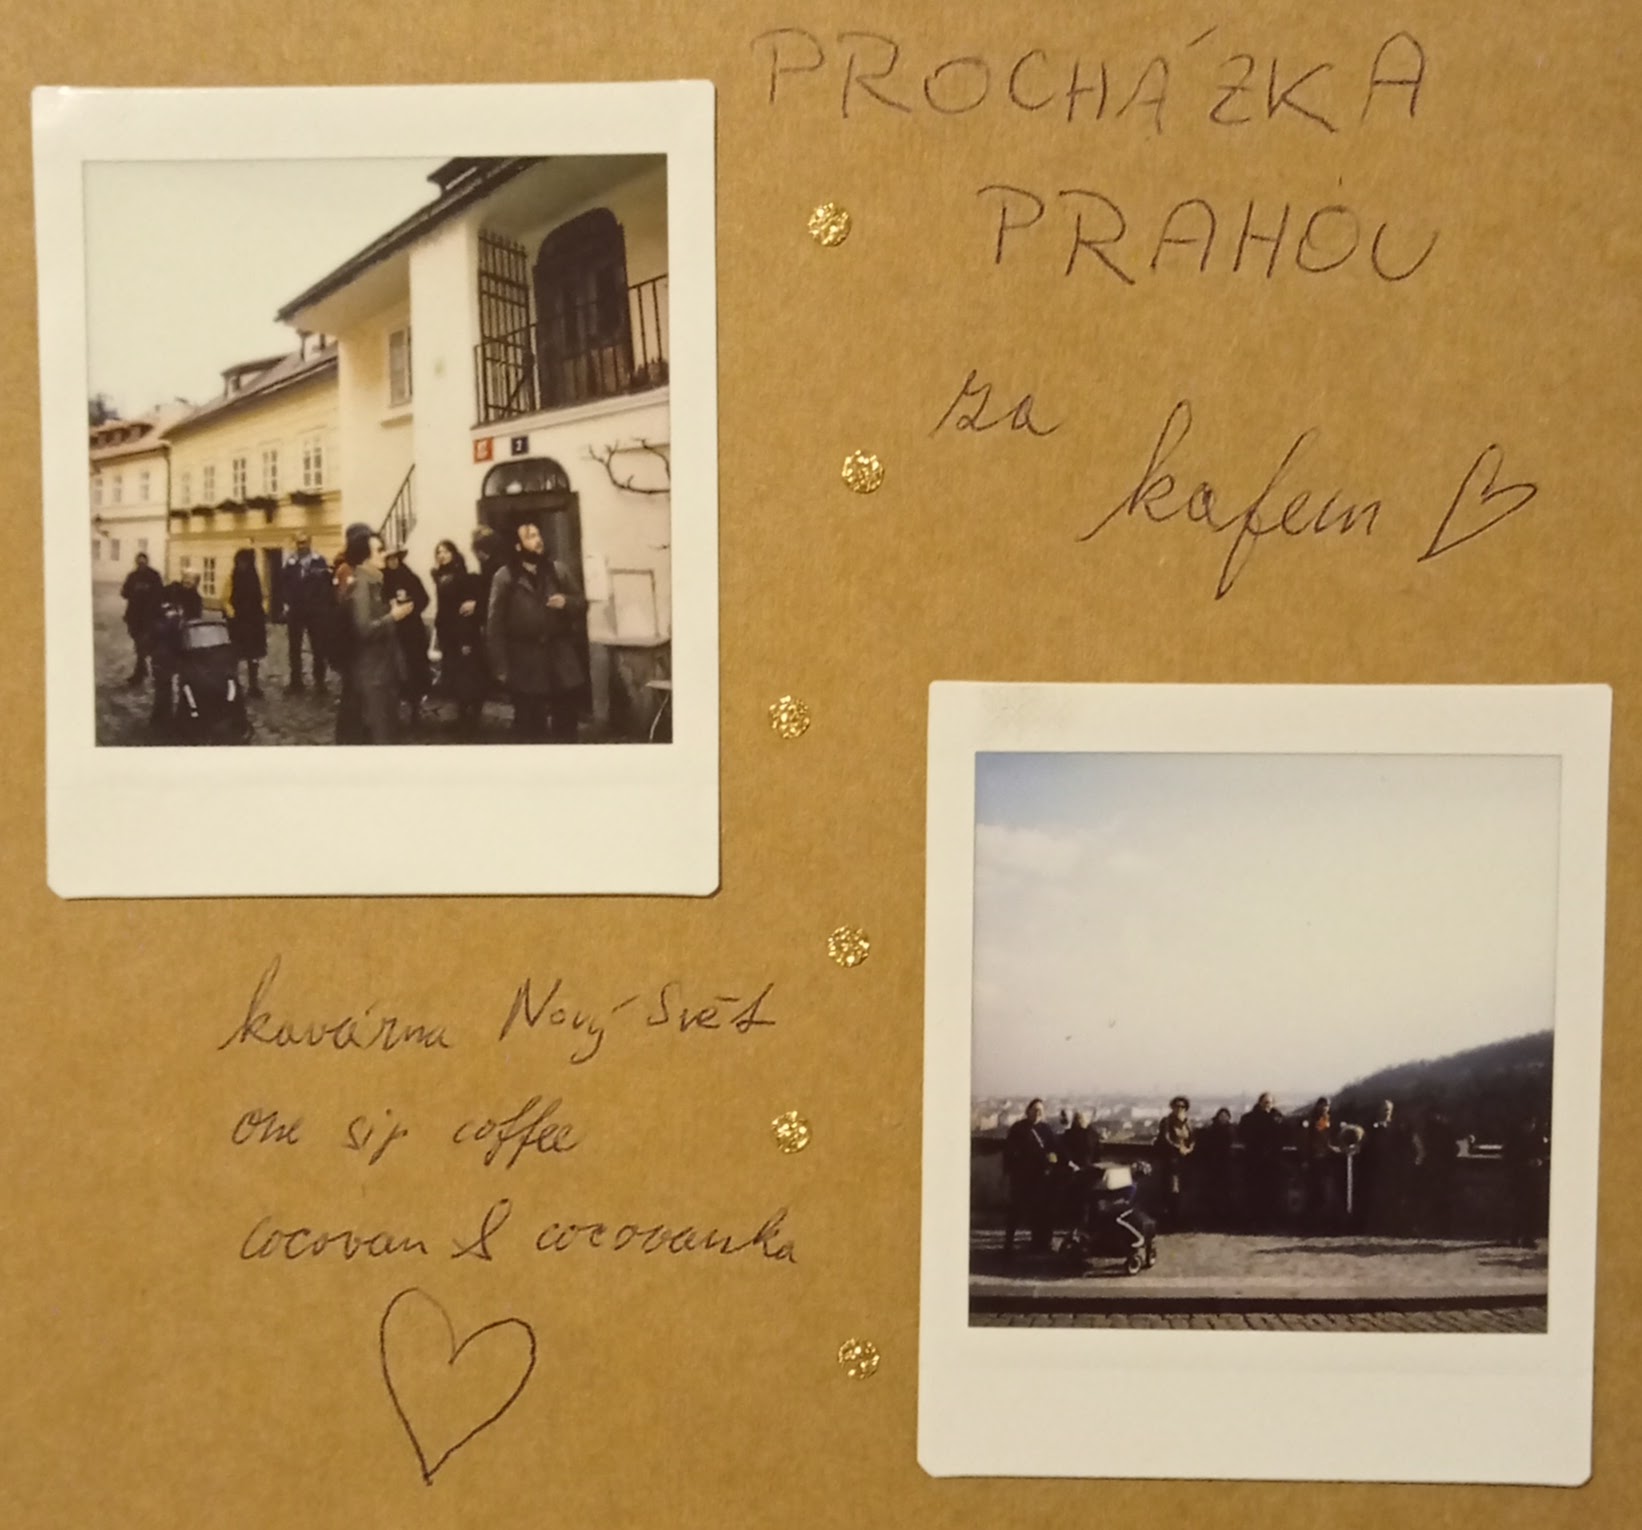 PROCHÁZKA
PRAHOU
za
kafem
kavárna Nový Svět
one sip coffee
cocovan & cocovanka